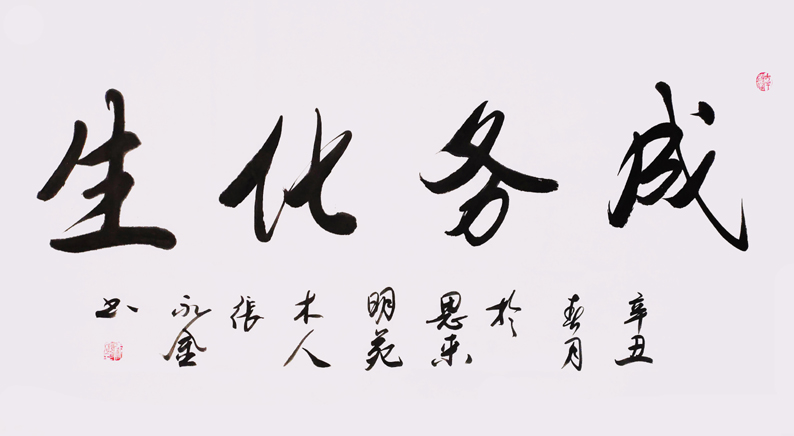 成务化生
辛丑
春月
於
思来
明苑
木人
張
永金
书